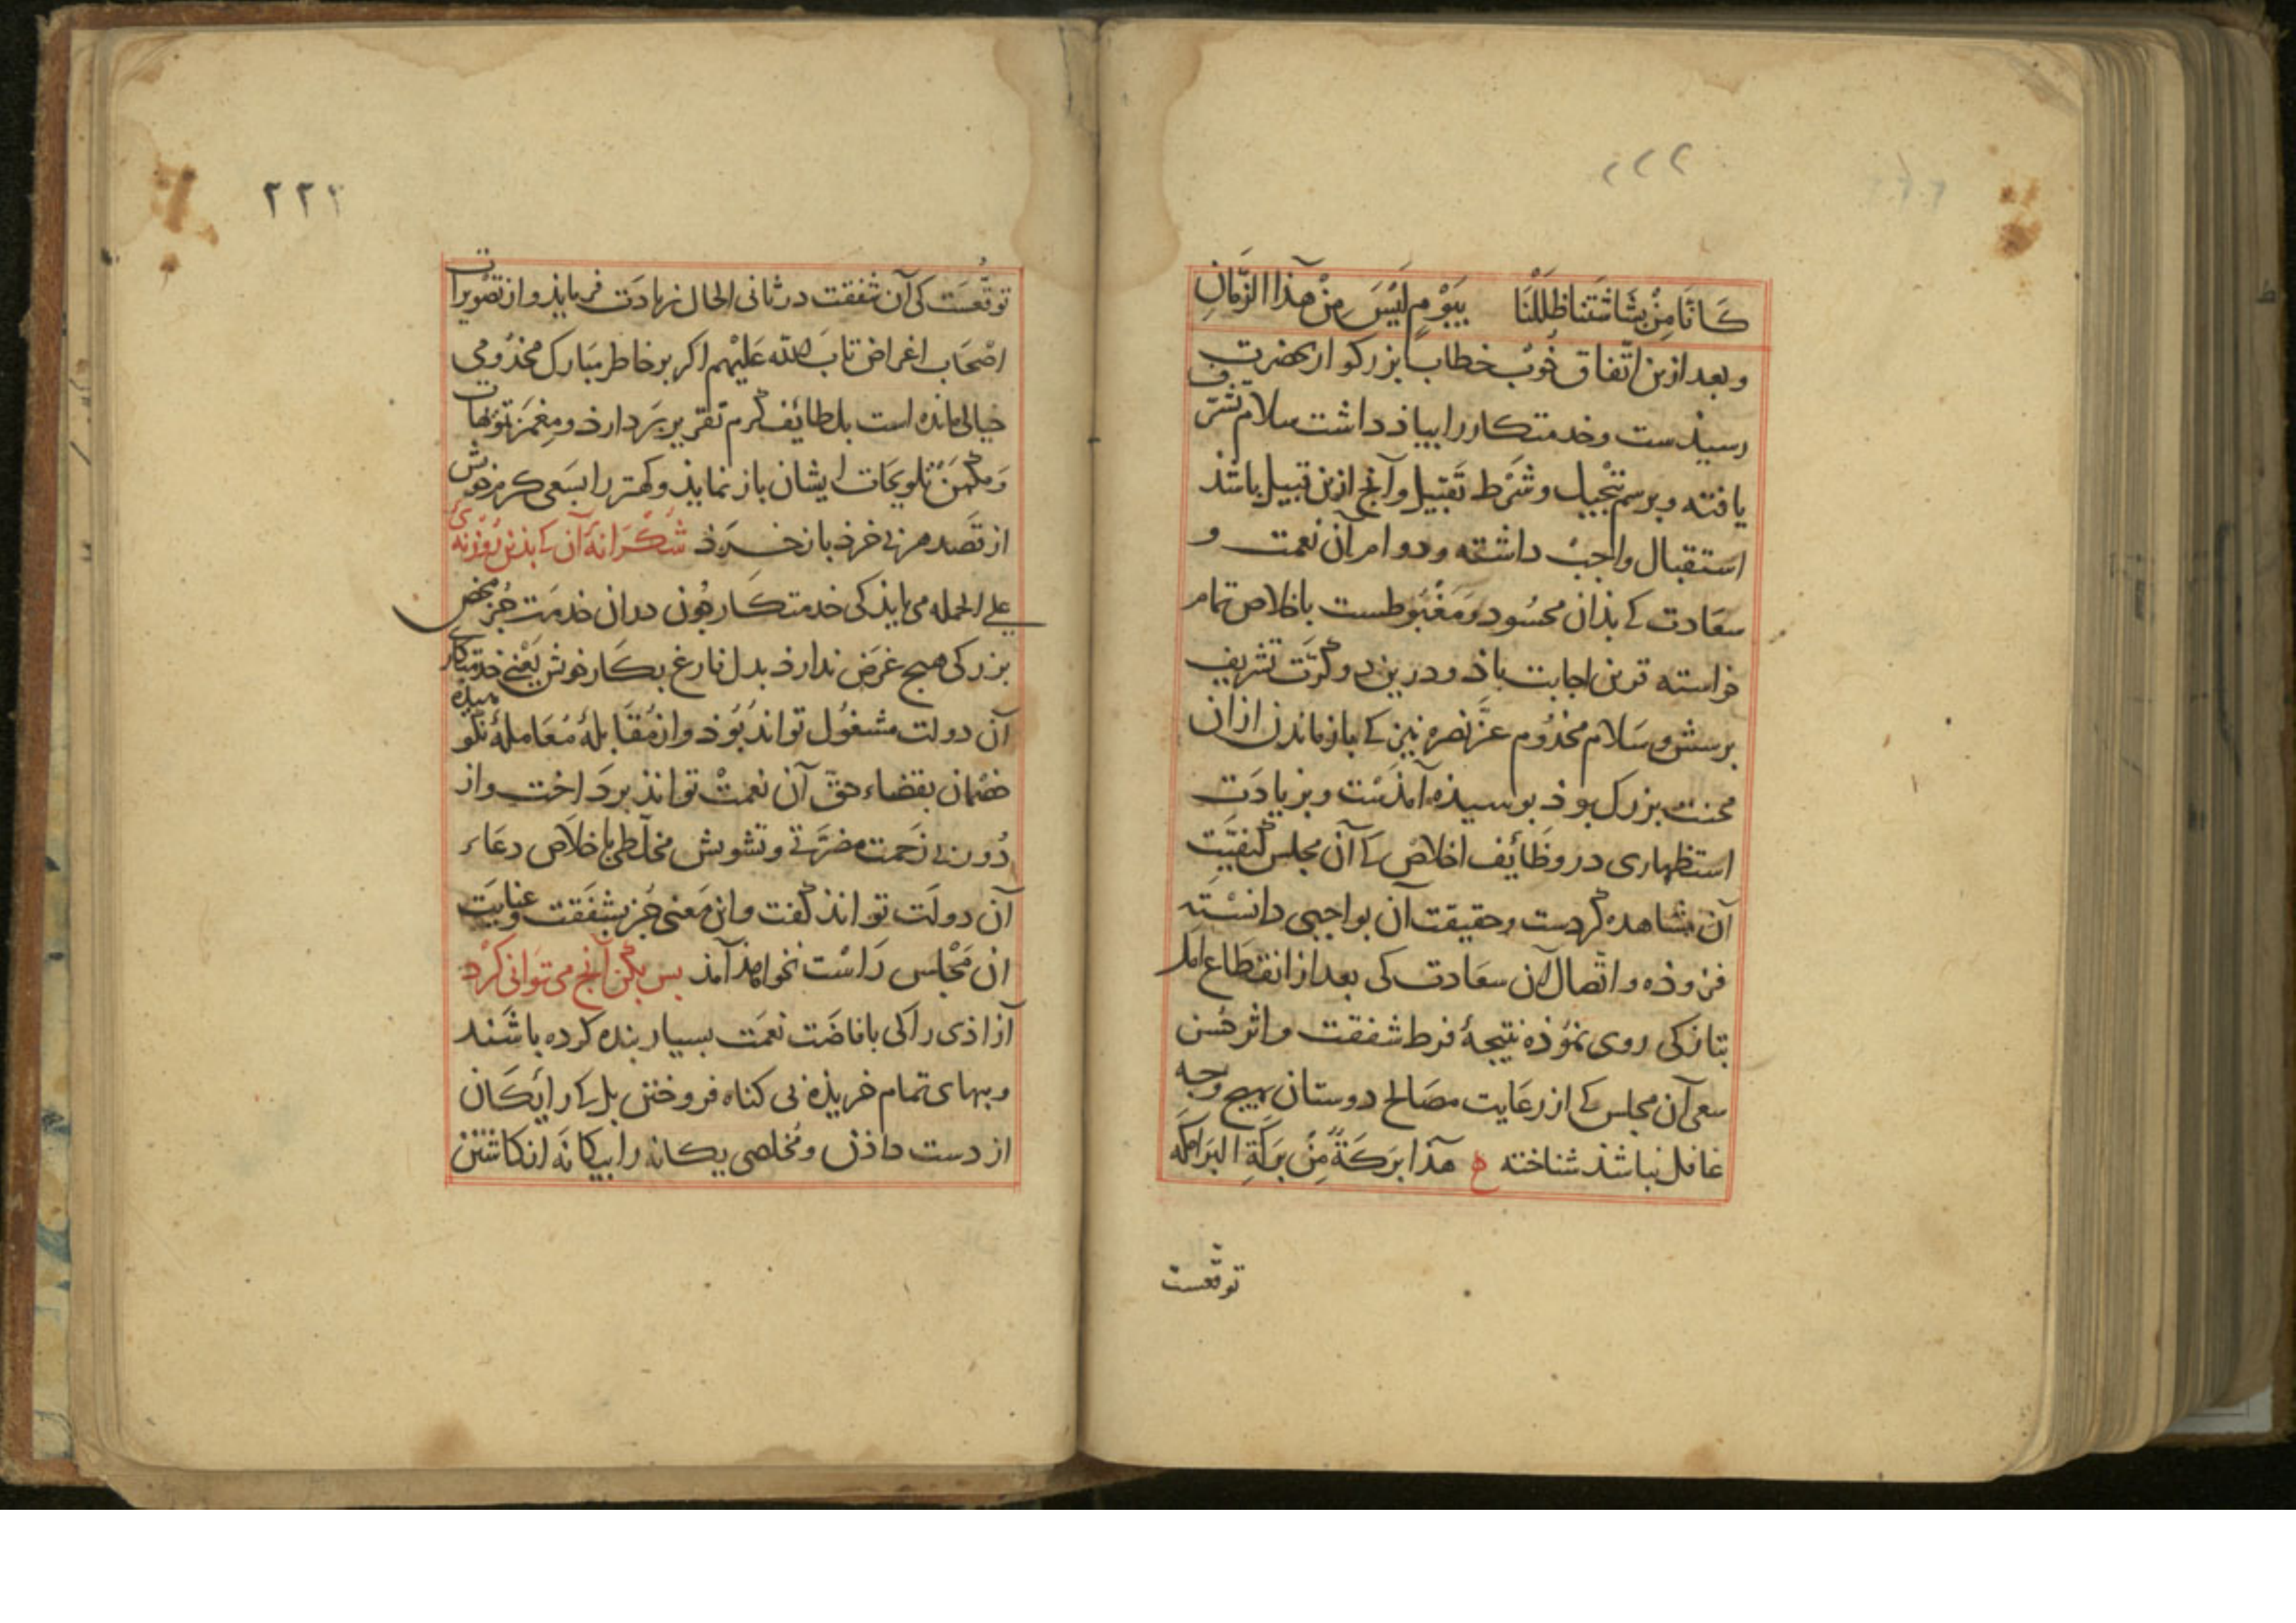 ۲۲۲
كَانَّا مِنْ بَشَاشَتِنا ظَلَلْنَا بِيَوْمٍ لَيْسَ مِنْ هٰذا الزَّمَانِ
و بعد ازین اتّفاق خُوب خطاب بزرکوار حضرت
رسیذست و خدمتکار را بیاذ داشت سلام تشرّف
یافته و برسم تبجیل و شرْط تَقبیل و آنچ ازین قبیل باشذ
استقبال واجب داشته و دوام آن نعمت و
سعَادت کے بذان محسُود و مَغْبُوطست باخلاص تمام
خواسته قرین اجابت باذ و درین دو کرّت تشریف
برسش و سَلام مخدُوم عزّ نصره نیز کے باز ماندن از ان
محنت بزرک بوذ بوسیذه آمذست و بزیادَت
استظهاری در وظَائف اخلاص کے آن مجلس کیفیّت
آن مشاهده کردست و حقیقت آن بواجبی دانسْته
فزوذه و اتّصال آن سعَادت کی بعد از انقطَاع امَل
بتازکی روی نموُذه نتیجهٔ فرط شفقت و اثر حُسن
سعی آن مجلس کے از رعَایت مصَالح دوستان بهیچ وجه
غافل نباشذ شناخته ع هٰذا بَرَكَةٌ مِنْ بَرَكَةِ البَرَامِكَه
توقّعست
۲۲۱
توقّعسَت کی آن شفقت در ثانی الحال زیادَت فرمایذ و از تصْویرات
اصْحَاب اغراض تابَ الله عَلیْهم اکر بر خاطر مبَارک مخذُومی
خیالی مانده است بلطائف کرم تقریر بردارذ و مِغمَز تمَویهات
وَ مَکْمَنْ تلویحَات ایشان باز نمایذ و کهتر را بسَعی کرم خویش
از قصَد هر بی خرذ باز خرَذ شُکْرَانهٔ آن کے بذین رُوْزنهٔ
علے الجمله می بایذ کی خدمتکَار چُون در ان خدمَت جُز محض
بزرکی هیچ غرَض ندارذ بدل فارغ بکَار خویش یَعْنی خدمتکاری
آن دولت مشغوُل توانذ بُوذ و از مُقَابلهٔ مُعَاملهٔ نکو
خصْمان بقضاء حقّ آن نعمتْ توانذ برداخْت و از
دُون بی زَحمت مضرّتی و تشویش مخلّطی باخلاَص دعَاء
آن دولَت توانذ کفت و این مَعنی جُز بشَفَقت و عنایَت
ان مَجْلس رَاسْت نخواهذ آمذ بس بکُن آنچ می توَانی کرْد
آزاذی را کی بافاضَت نعمَت بسیار بنده کرده باشَند
و ببهای تمام خریذه بی کناه فروختن بل کے رایَکَان
از دست داذن و مُخلصی یکانه را بیکانَه انکاشتن